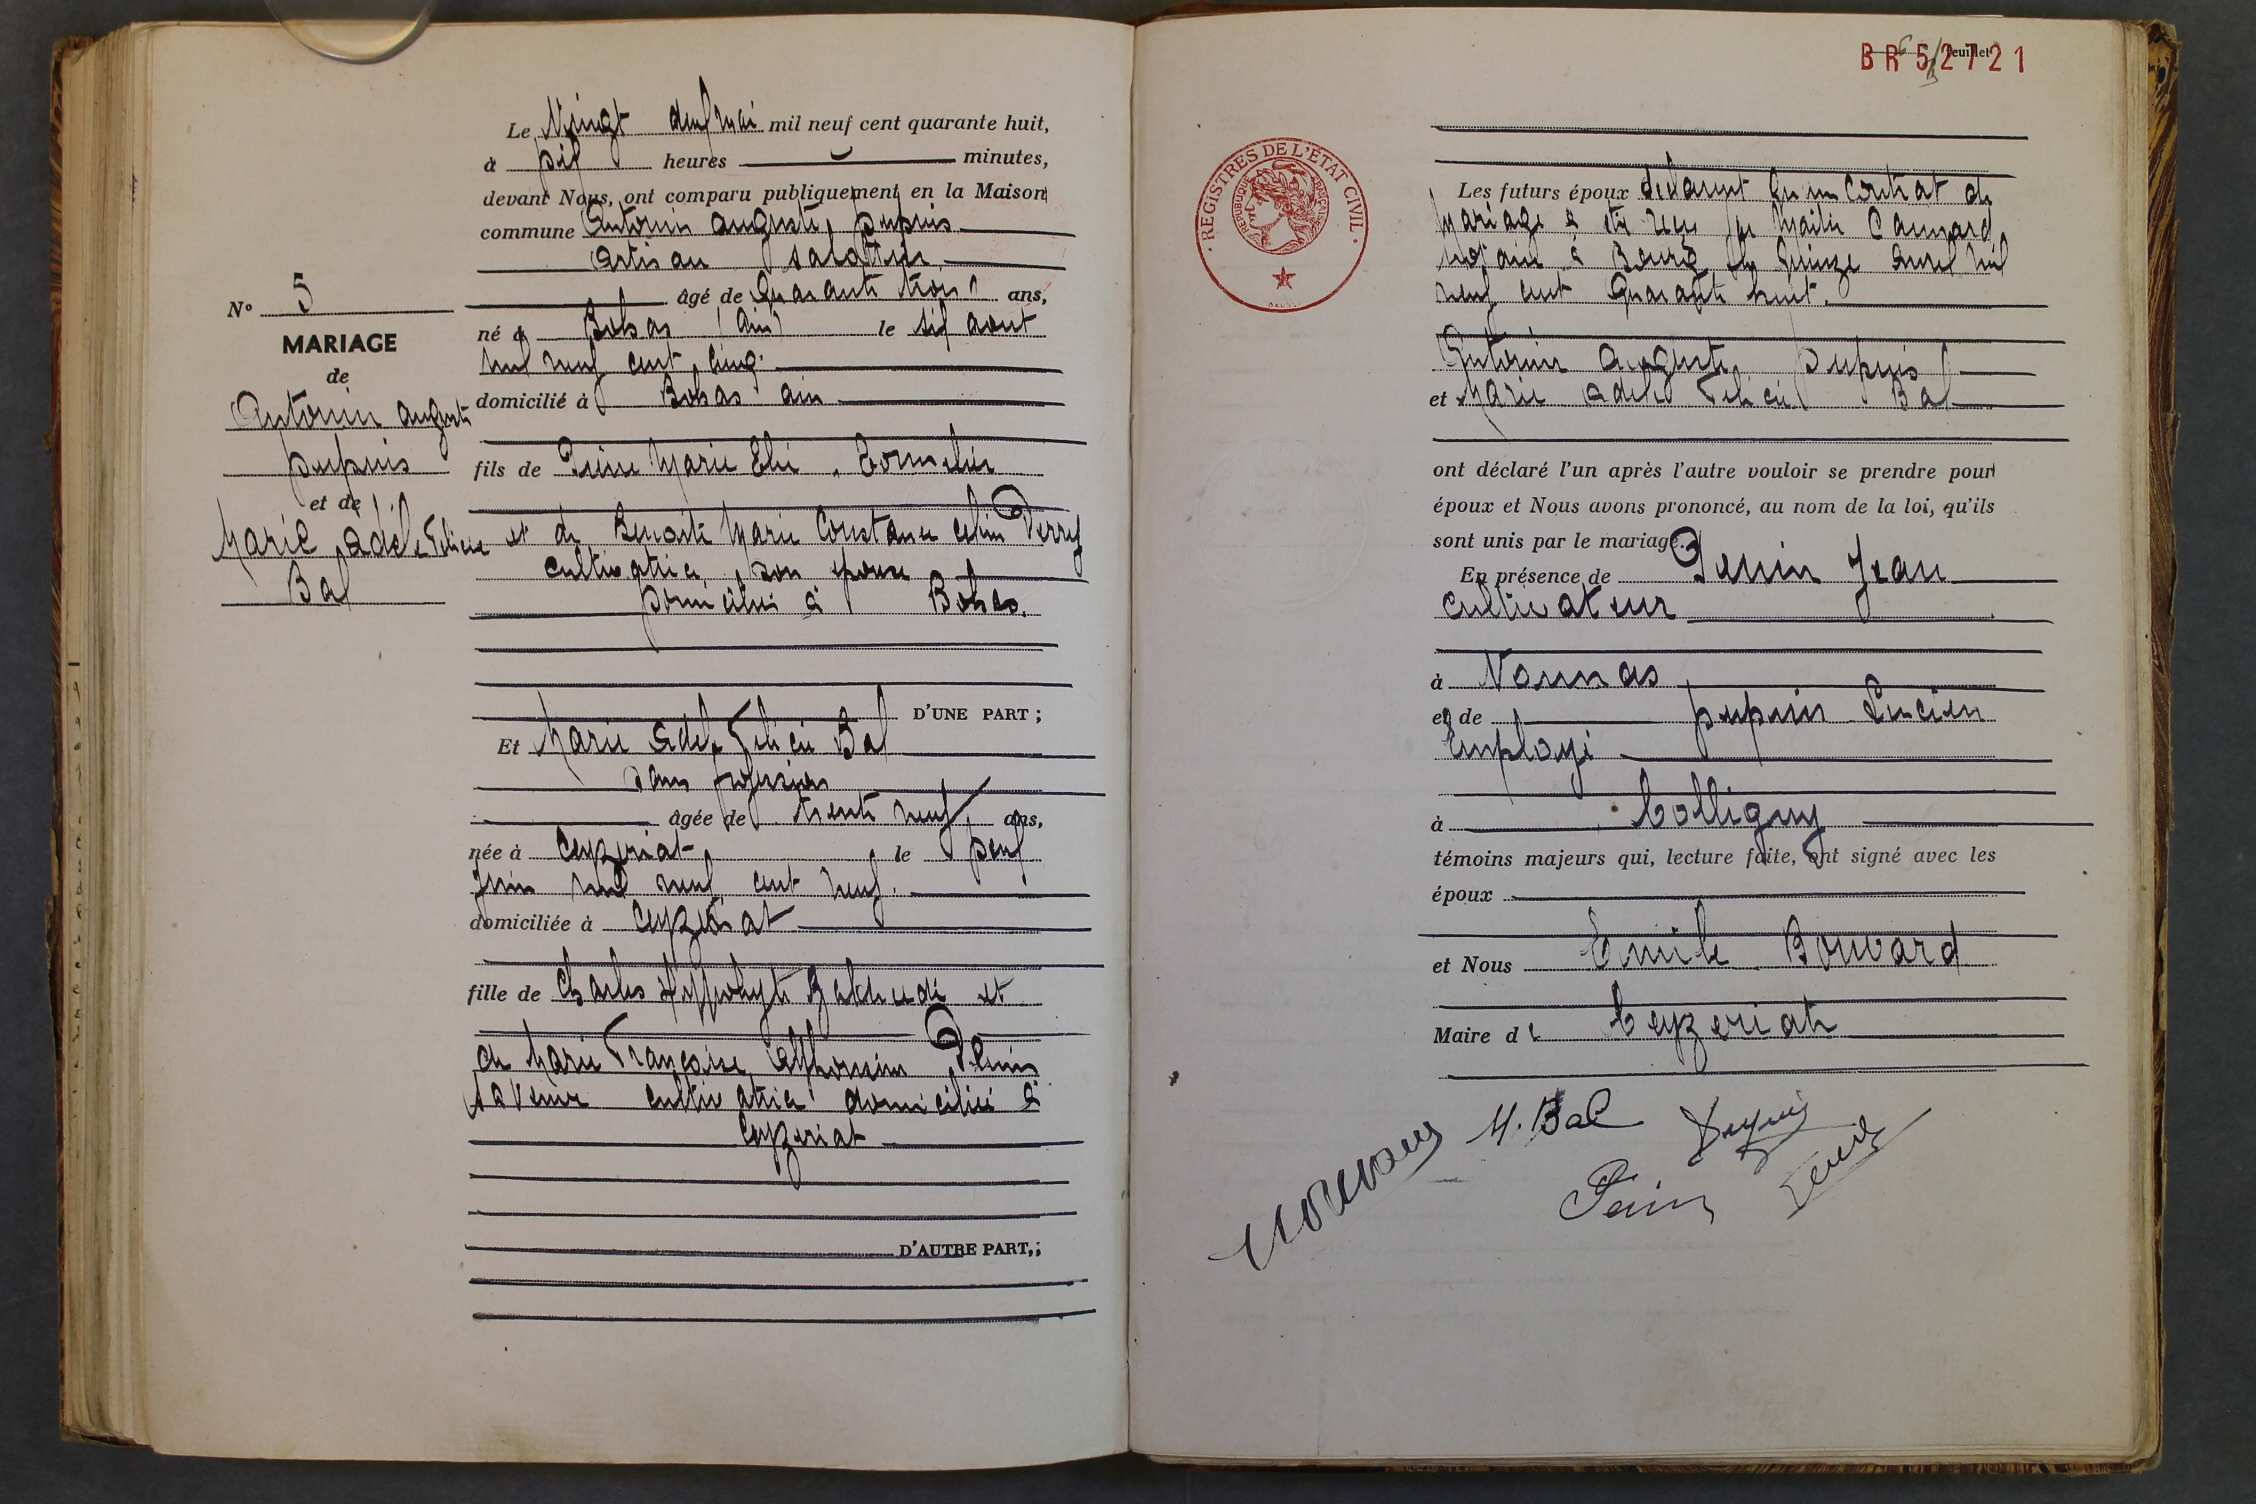 Le Vingt deux Mai mil neuf cent quarante huit,
à dix heures minutes,
devant Nous, ont comparu publiquement en la Maison
commune Antonin Auguste Dupuis
artisan sabotier
âgé de Quarante trois ans,
né à Bohas (Ain) le six aout
mil neuf cent cinq.
domicilié à Bohas ain
fils de Marie
et de Benoite Marie Constance
cultivatrice son epouse
domiciliés à Bohas.
D'UNE PART ;
N° 5
MARIAGE
de
Antonin Auguste
Dupuis
et de
Marie Adèle Felicie
Bal
Et Marie Adele Felicie Bal
sans profession
âgée de trente neuf ans,
née à Ceyzeriat le neuf
Juin mil neuf cent neuf.
domiciliée à Ceyzeriat
fille de Charles Hippolyte Bal et
de Marie Françoise Alphonsine
sa veuve cultivatrice domiciliée à
Ceyzeriat
D'AUTRE PART,;
BR 52721
feuillet
REGISTRES DE L'ÉTAT CIVIL
RÉPUBLIQUE FRANÇAISE
Les futurs époux declarent qu'un contrat de
Mariage a été recu par Maitre
notaire à Bourg le Quinze Avril mil
neuf cent Quarante huit.
Antonin Auguste Dupuis
et Marie Adele Felicie Bal
ont déclaré l'un après l'autre vouloir se prendre pour
époux et Nous avons prononcé, au nom de la loi, qu'ils
sont unis par le mariage.
En présence de Jean
cultivateur
à Nonnas
et de Dupuis Lucien
Employé
à Colligny
témoins majeurs qui, lecture faite, ont signé avec les
époux
et Nous Emile Bouvard
Maire de Ceyzeriat
M. Bal Dupuis